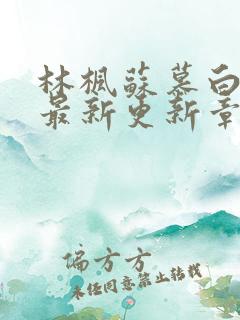 林楓蘇慕白
最新更新章
偏方方
未经同意禁止转载